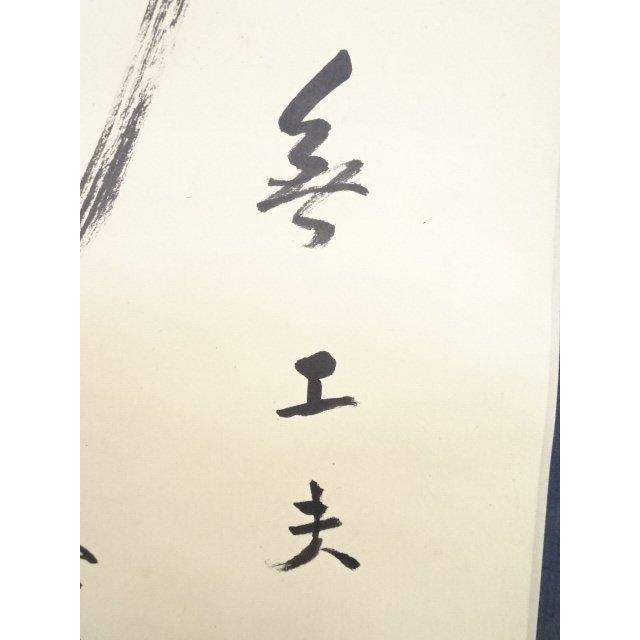 無工夫